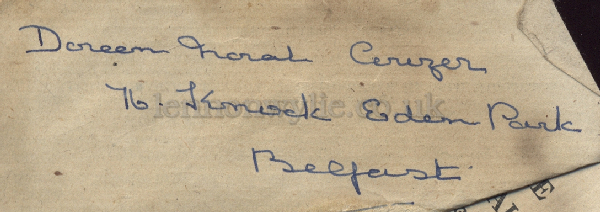 Doreen Norah
76. Knock Eden Park
Belfast.
lennonwylie.co.uk
E